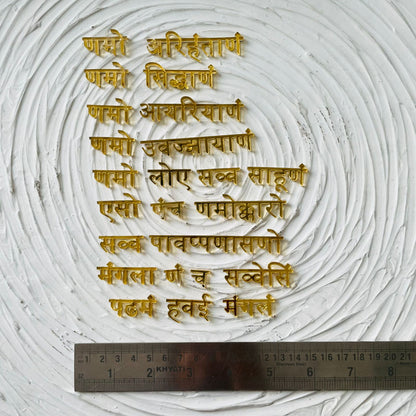 णमो अरिहंताणं
णमो सिद्धाणं
णमो आयरियाणं
णमो उवज्झायाणं
णमो लोए सव्व साहूणं
एसो पंच णमोक्कारो
सव्व पावप्पणासणो
मंगला णं च सव्वेसिं
पढमं हवई मंगलं
1 2 3 4 5 6 7 8 9 10 11 12 13 14 15 16 17 18 19 20 21
KHYATI
1 2 3 4 5 6 7 8